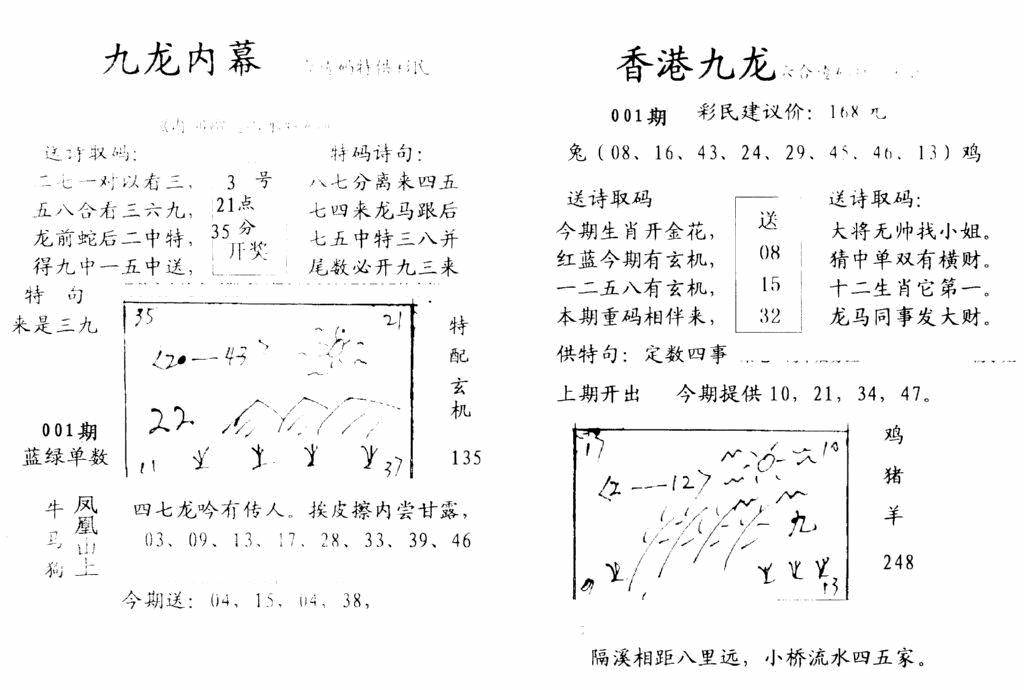 九龙内幕
送诗取码：
特码诗句：
二七一对以看三，
五八合看三六九，
龙前蛇后二中特，
得九中一五中送，
3 号
21点
35 分
开奖
八七分离来四五
七四来龙马跟后
七五中特三八并
尾数必开九三来
特 句
来是三九
35
21
〈20——43〉
22
11
37
特
配
玄
机
135
001期
蓝绿单数
牛
马
狗
凤凰山上
四七龙吟有传人。挨皮擦内尝甘露，
03、09、13、17、28、33、39、46
今期送：04，15，04，38，
香港九龙
001期 彩民建议价：168元
兔（08、16、43、24、29、45、46、13）鸡
送诗取码
今期生肖开金花，
红蓝今期有玄机，
一二五八有玄机，
本期重码相伴来，
送
08
15
32
送诗取码：
大将无帅找小姐。
猜中单双有横财。
十二生肖它第一。
龙马同事发大财。
供特句：定数四事
上期开出 今期提供10，21，34，47。
17
10
〈2——12〉
九
13
鸡
猪
羊
248
隔溪相距八里远，小桥流水四五家。